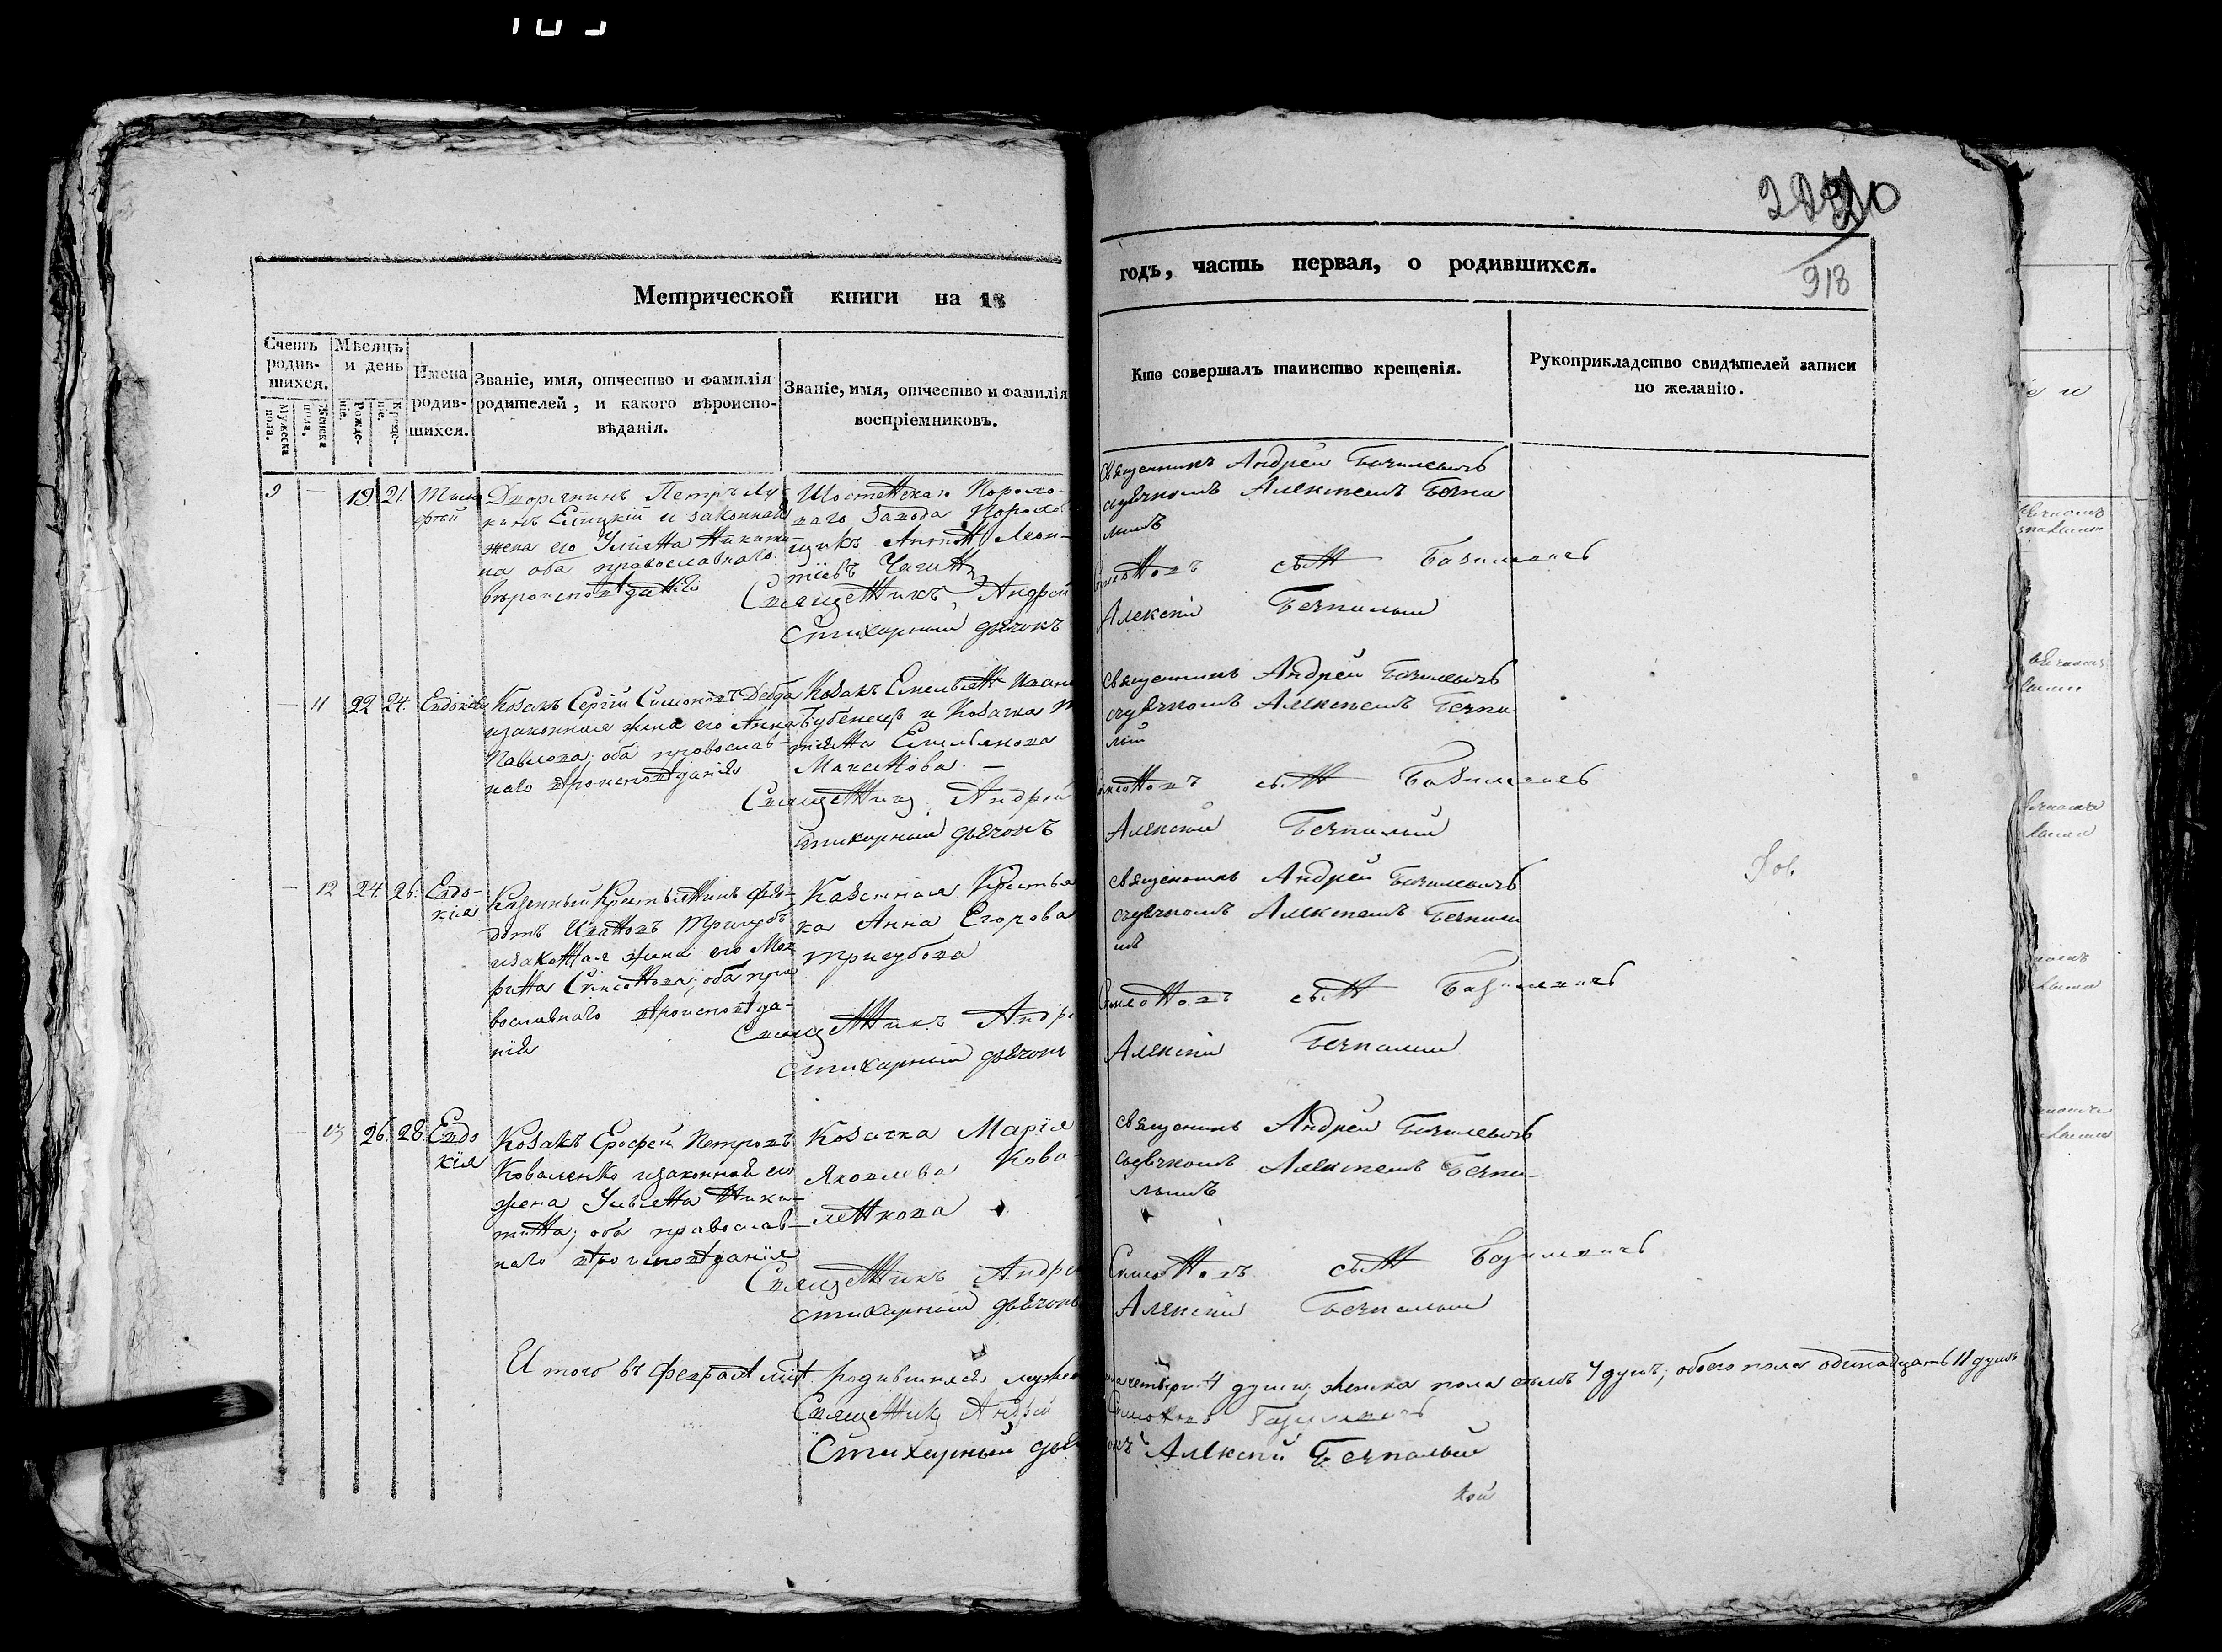 2220
918
Метрической книги на 18
годъ, часть первая, о родившихся.
Счетъ родив-шихся.
Мужеска пола.
Женска пола.
Мѣсяцъ и день
Рожде-нiе.
Креще-нiе.
Имена родив-шихся.
Званiе, имя, отчество и фамилiя
родителей, и какого вѣроиспо-
вѣданiя.
Званiе, имя, отчество и фамилiя
воспрiемниковъ.
Кто совершалъ таинство крещенiя.
Рукоприкладство свидѣтелей записи
по желанiю.
9 — 19 21. Тимо
фей
Дворянинъ Петръ Лу
кинъ Елицкiй и законная
жена его Улiяна Никити
на оба православнаго
вѣроисповѣданiя
Шостенскаго Порохо-
ваго Завода Порохо
щикъ Антонъ Леон-
тiевъ Чагинъ
Священникъ Андрей
Стихарный дьячокъ
священникъ Андрей Базилевичъ
съдьячкомъ Алексѣемъ Безпа
лымъ
Симоновъ сынъ Базилевичъ
Алексiй Безпалый
— 11 22 24. Евдокiя
Козакъ Сергiй Симоновъ Деба
изаконная жена его Анна
Павлова; оба православ-
наго вѣроисповѣданiя
Козакъ Емельянъ Иван
Бубенецъ и Козачка
тiяна Емельянова
Максимова —
Священникъ Андрей
стихарный дьячокъ
священникъ Андрей Базилевичъ
съдьячкомъ Алексѣемъ Безпа
лый
Симоновъ сынъ Базилевичъ
Алексiй Безпалый
— 12 24. 26. Евдо-
кiя
Казенный Крестьянинъ Фе-
дотъ Ивановъ Тригубъ
изаконная жена его Мав
рина Симонова; оба пра
вославнаго вѣроисповѣда-
нiя
Казенная Крестья
ка Анна Егорова
Тригубова
Священникъ Андре
Стихарный дьячокъ
священникъ Андрей Базилевичъ
съдьячкомъ Алексѣемъ Безпалы
мъ
Симоновъ сынъ Базилевичъ
Алексiй Безпалый
— 13 26. 28. Евдо
кiя
Козакъ Ерофей Петровъ
Коваленко изаконная его
жена Ульяна Ники-
тина; оба православ-
наго вѣроисповѣданiя
Козачка Марiя
Яковлева Кова-
ленкова
Священникъ Андре
стихарный дьячокъ
священникъ Андрей Базилевичъ
съдьячкомъ Алексѣемъ Безпа-
лымъ
Симоновъ сынъ Базилевичъ
Алексiй Безпалый
Итого въ Февралѣ мцѣ родившихся мужеска
пола четыри 4 души, женска пола семъ 7 душъ; обоего пола одинадцать 11 душъ
Священникъ Андрей Симоновъ Базилевичъ
Стихарный дьячокъ Алексiй Безпалый
кой